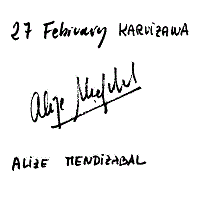 27 February KARUIZAWA
Alize
ALIZE MENDIZABAL